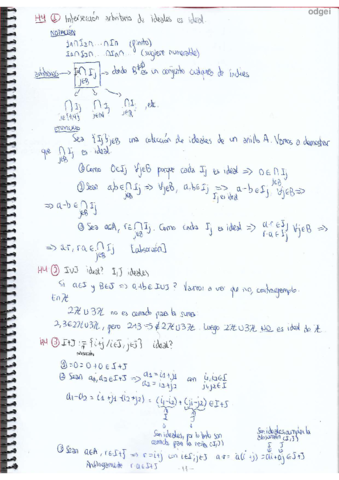 odgei
H4 ① Intersección arbitraria de ideales es ideal.
NOTACIÓN
I₁∩I₂∩ ... ∩Iₙ (finito)
I₁∩I₂∩ ... ∩Iₙ∩... (infinito numerable)
arbitraria ⋂ Iⱼ j∈B → donde B es un conjunto cualquiera de índices
⋂ Iⱼ ⋂ Iⱼ ⋂ Iⱼ, etc.
Sea {Iⱼ}j∈B una colección de ideales de un anillo A. Vamos a demostrar
que ⋂ Iⱼ j∈B es ideal
① Como 0∈Iⱼ ∀j∈B porque cada Iⱼ es ideal ⟹ 0∈⋂ Iⱼ j∈B
② Sean a,b∈⋂ Iⱼ j∈B ⟹ ∀j∈B, a,b∈Iⱼ ⟹ a-b∈Iⱼ ∀j∈B ⟹
Iⱼ es ideal
⟹ a-b∈⋂ Iⱼ j∈B
③ Sea a∈A, r∈⋂ Iⱼ j∈B. Como cada Iⱼ es ideal ⟹ a·r∈Iⱼ r·a∈Iⱼ ∀j∈B ⟹
⟹ a·r, r·a∈⋂ Iⱼ j∈B [absorción]
H4 ② I∪J ideal? I,J ideales
Si a∈I y b∈J ⟹ a+b∈I∪J? Vamos a ver que no, contraejemplo
En ℤ
2ℤ∪3ℤ no es cerrado para la suma
2,3∈2ℤ∪3ℤ, pero 2+3=5∉2ℤ∪3ℤ. Luego 2ℤ∪3ℤ NO es ideal de A.
H4 ③ I+J := {i+j / i∈I, j∈J} ideal?
① 0=0+0∈I+J
② Sean a₁,a₂∈I+J ⟹ a₁=i₁+j₁ a₂=i₂+j₂ con i₁,i₂∈I j₁,j₂∈J
a₁-a₂=i₁+j₁-(i₂+j₂)=(i₁-i₂)+(j₁-j₂)∈I+J
Son ideales, por lo tanto son cerrados para la resta (I,J)
Son ideales, cumplen la absorción (I,J)
③ Sean a∈A, r∈I+J ⟹ r=i+j con i∈I, j∈J a·r=a(i+j)=ai+aj∈I+J
Análogamente r·a∈I+J